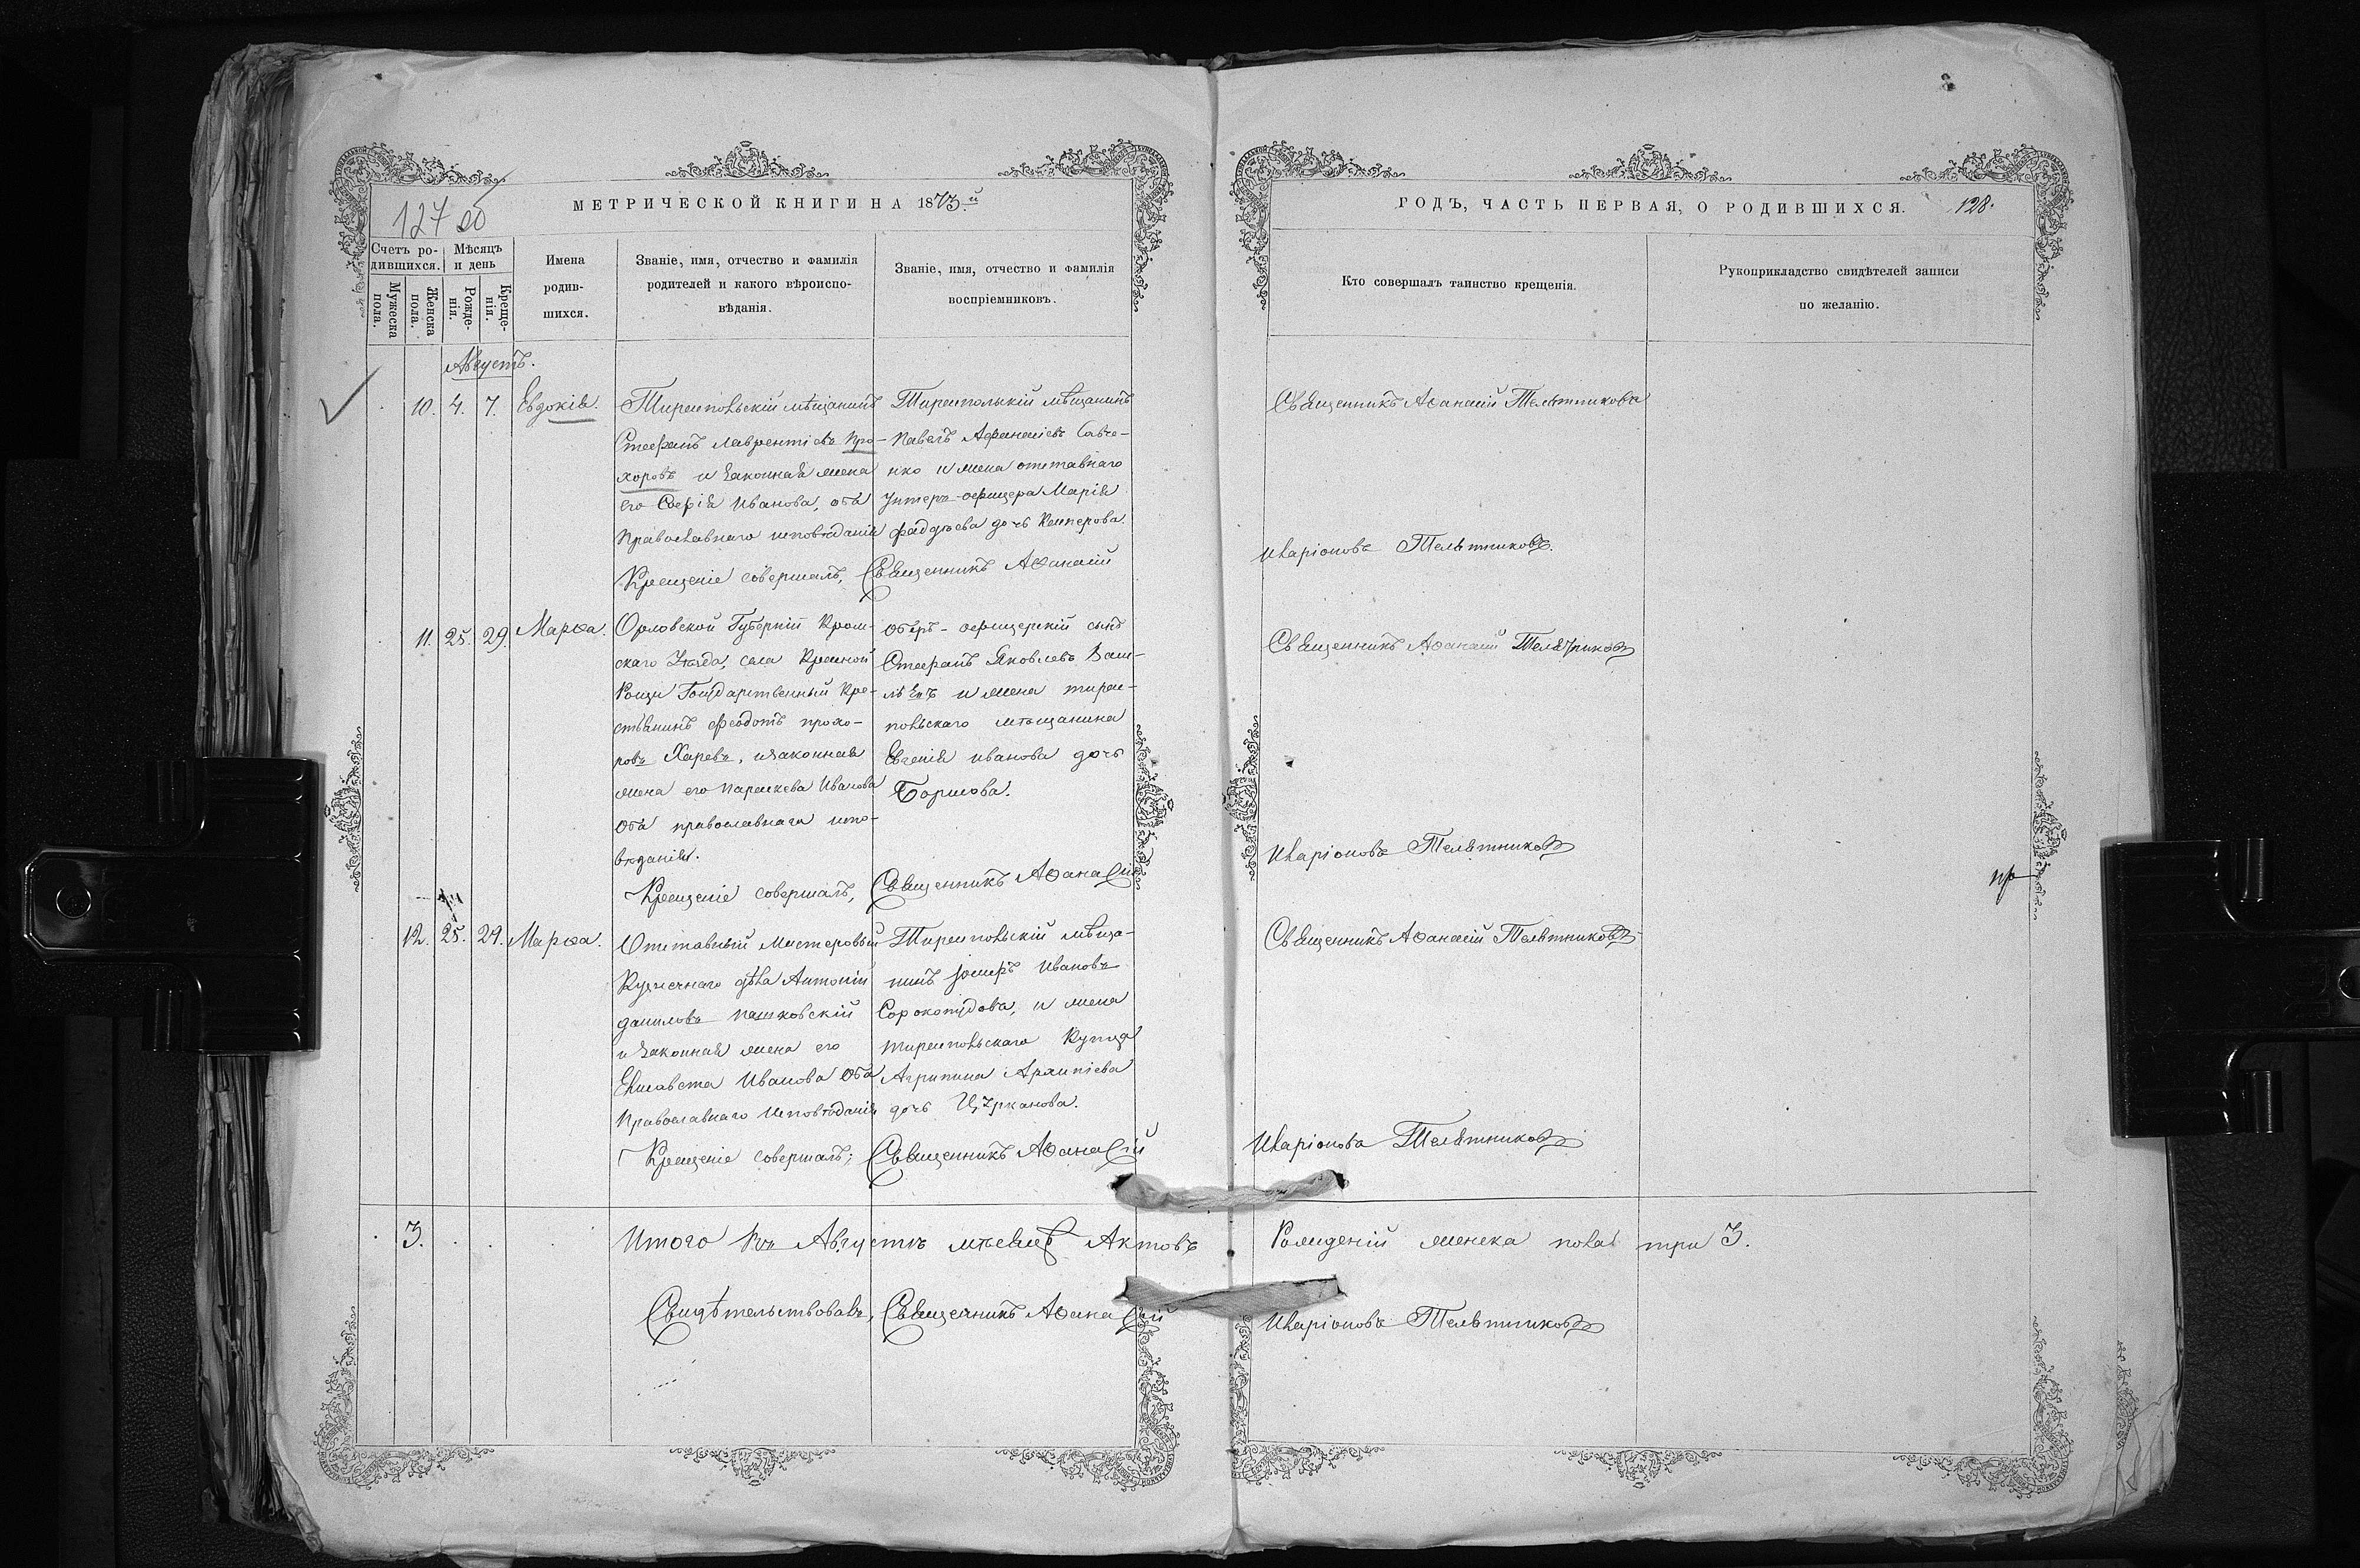 127 об
МЕТРИЧЕСКОЙ КНИГИ НА 1873.й
ГОДЪ, ЧАСТЬ ПЕРВАЯ, О РОДИВШИХСЯ.
128.
Счетъ ро-
дившихся.
Мужеска
пола.
Женска
пола.
Мѣсяцъ
и день
Рожде-
нія.
Креще-
нія.
Имена
родив-
шихся.
Званіе, имя, отчество и фамилія
родителей и какого вѣроиспо-
вѣданія.
Званіе, имя, отчество и фамилія
воспріемниковъ.
Кто совершалъ таинство крещенія.
Рукоприкладство свидѣтелей записи
по желанію.
Августъ.
10. 4. 7. Евдокія.
Тираспольскій мѣщанинъ
Стефанъ Лаврентіевъ Про-
хоровъ и законная жена
его Софія Иванова, оба
Православнаго исповѣданія
Тираспольскій мѣщанинъ
Павелъ Афанасіевъ Савче-
нко и жена отставнаго
Унтеръ-офицера Марія
Фаддѣева дочь
Священникъ Аѳанасій Телятниковъ
Крещеніе совершалъ, Священникъ Аѳанасій
Иларіоновъ Телятниковъ.
11. 25. 29. Марѳа.
Орловской Губерніи Кром-
скаго Уѣзда, села Красной
Рощи Государственный Кре-
стьянинъ Феодотъ Прохо-
ровъ Харевъ, и законная
жена его Параскева Иванова
Оба православнаго испо-
вѣданія.
Оберъ-офицерскій сынъ
Стефанъ Яковлевъ
и жена тирас-
польскаго мѣщанина
Евгенія Иванова дочь
Борисова.
Священникъ Аѳанасій Телятниковъ
Крещеніе совершалъ, Священникъ Аѳанасій
Иларіоновъ Телятниковъ
12. 25. 29. Марѳа.
Отставный Мастеровый
Кузнечнаго дѣла Антоній
Даниловъ Пашковскій
и законная жена его
Елисавета Иванова Оба
Православнаго Исповѣданія
Тираспольскій мѣща-
нинъ Іосифъ Ивановъ
Сорокопудовъ, и жена
тираспольскаго Купца
Агрипина Архипіева
дочь Цурканова.
Священникъ Аѳанасій Телятниковъ
Крещеніе совершалъ; Священникъ Аѳанасій
Иларіоновъ Телятниковъ
3. Итого въ Августѣ мѣсяцѣ Актовъ
Рожденій женска пола три 3.
Свидѣтельствовалъ, Священникъ Аѳанасій
Иларіоновъ Телятниковъ